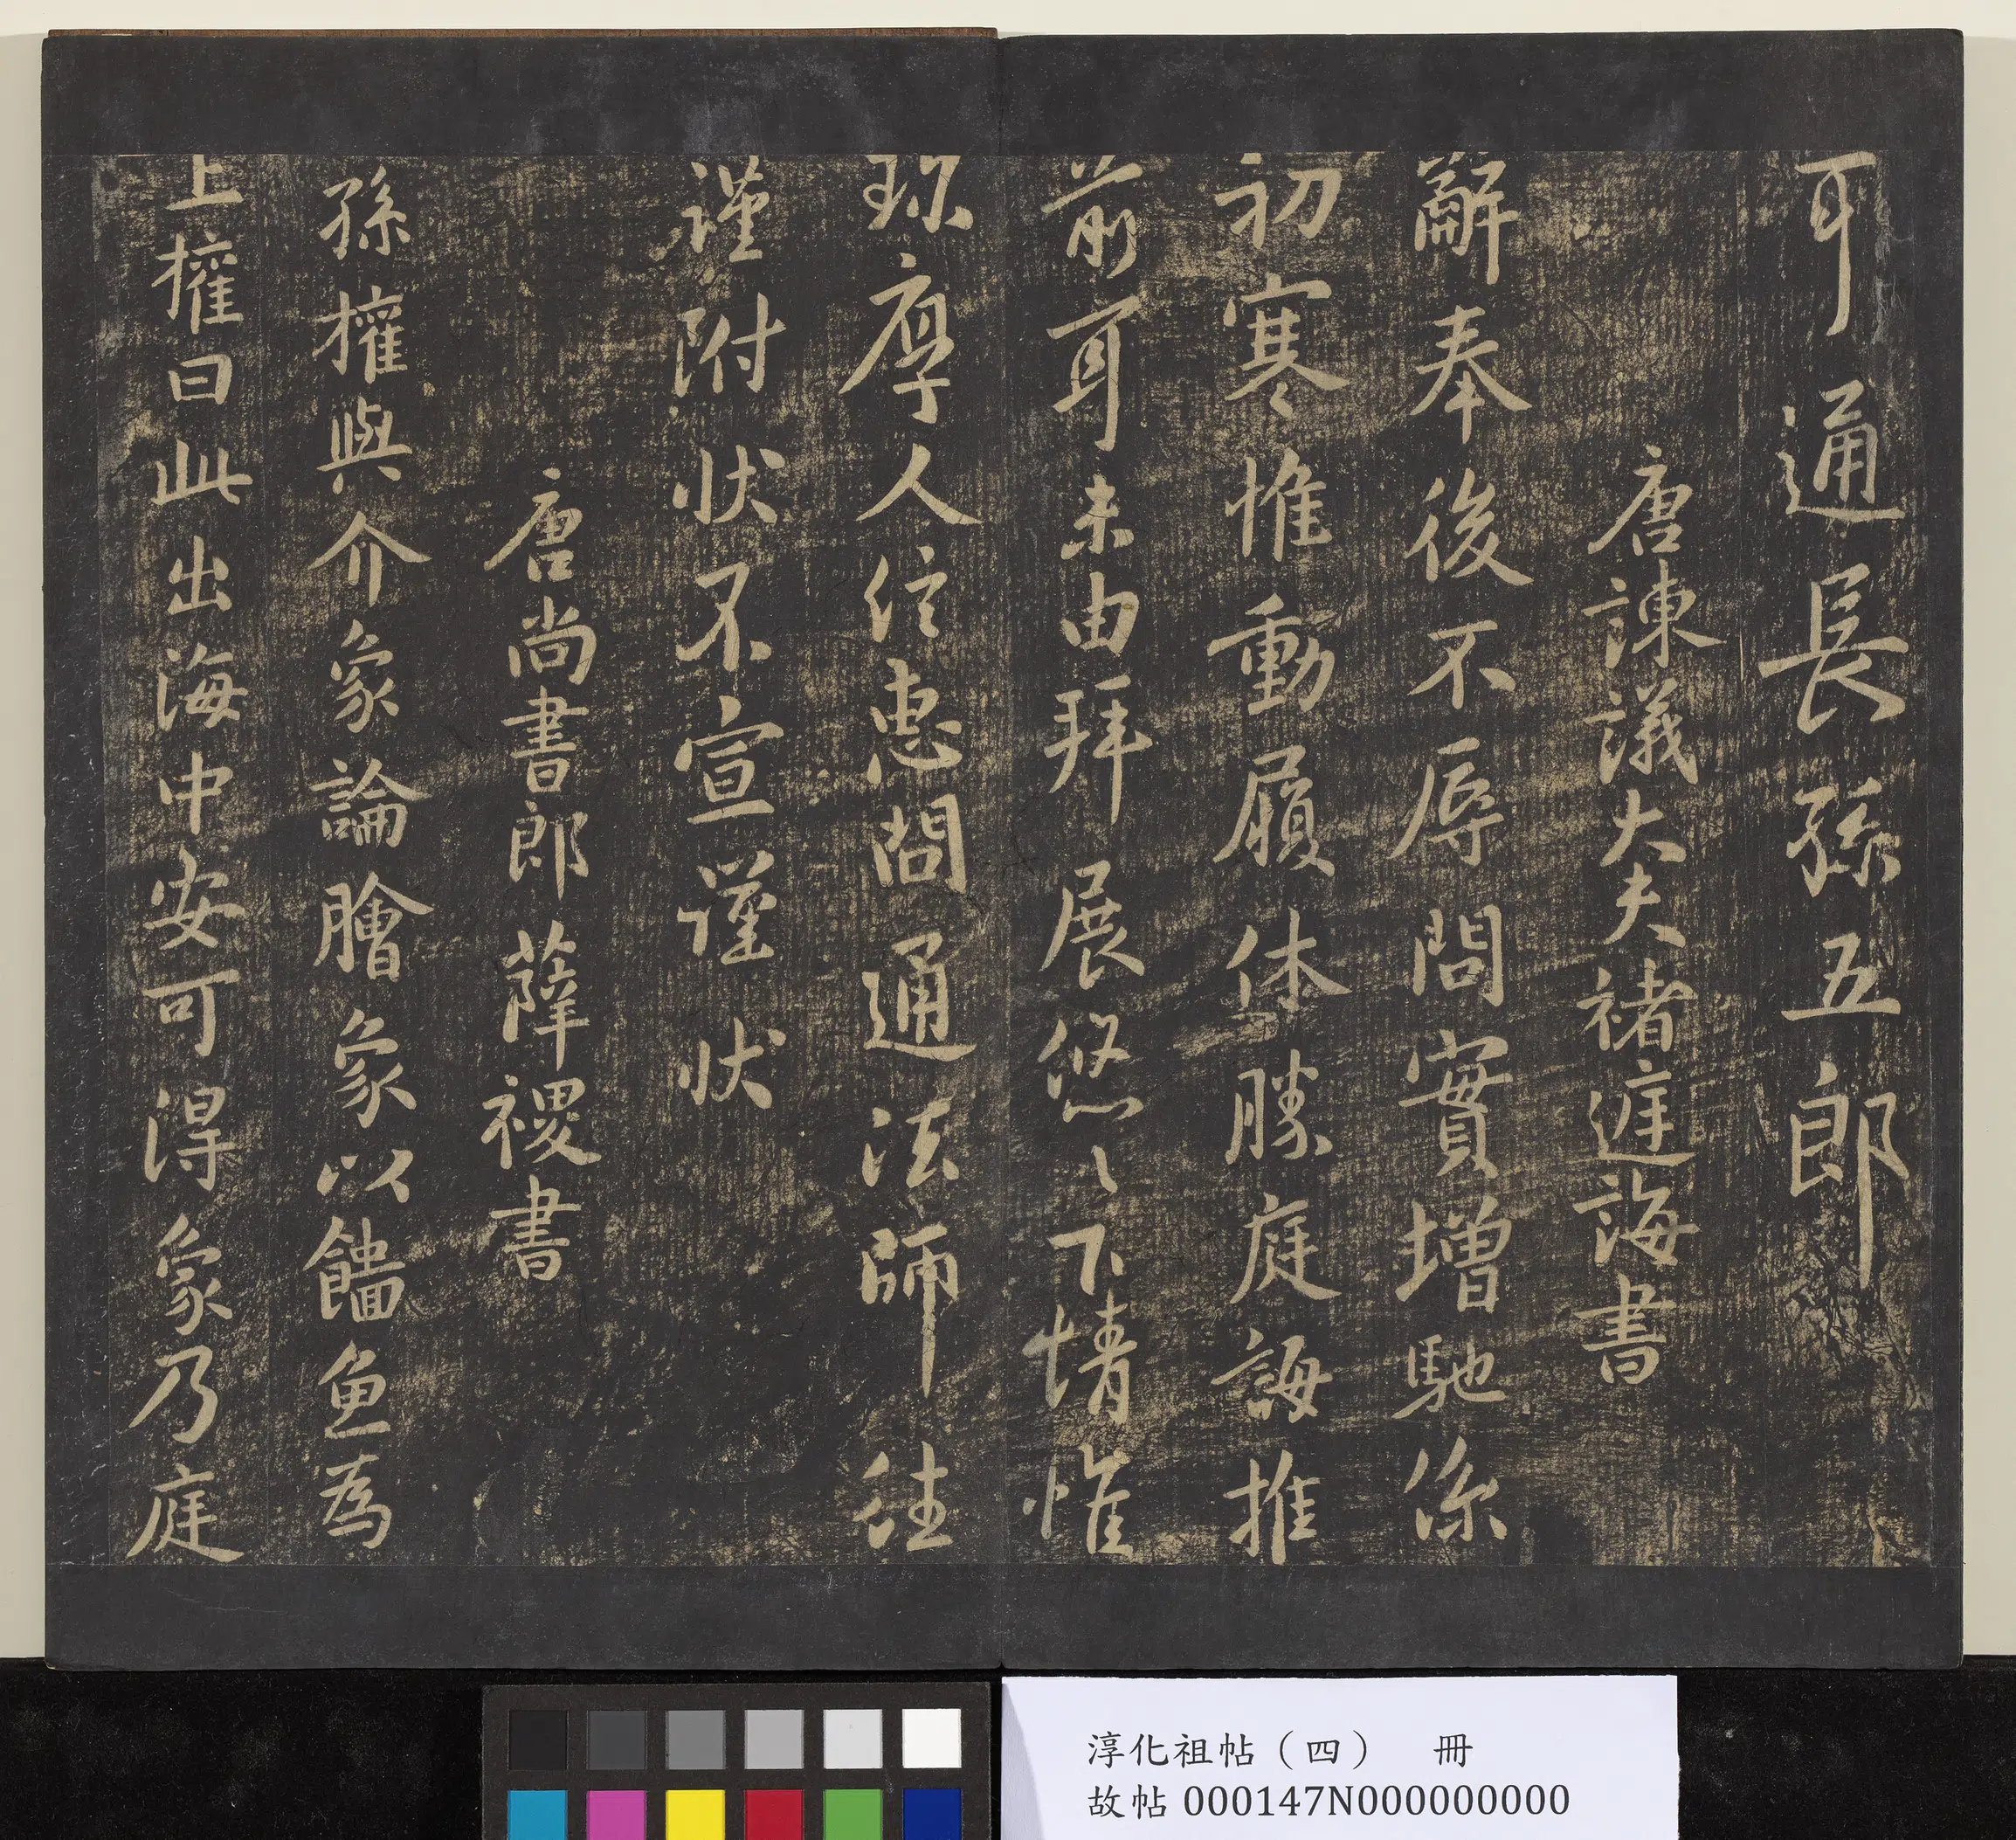 耳通長孫五郎
唐諫議大夫褚遂良書
辭奉後不辱問實增馳係
初寒惟動履休勝庭誨推
前耳未由拜展悠〻下情惟
珎厚人往惠問通法師往
謹附状不宣謹状
唐尚書郎薛稷書
孫權與介象論鱠象以鯔魚為
上權曰此出海中安可得象乃庭
淳化祖帖（四） 冊
故帖 000147N000000000